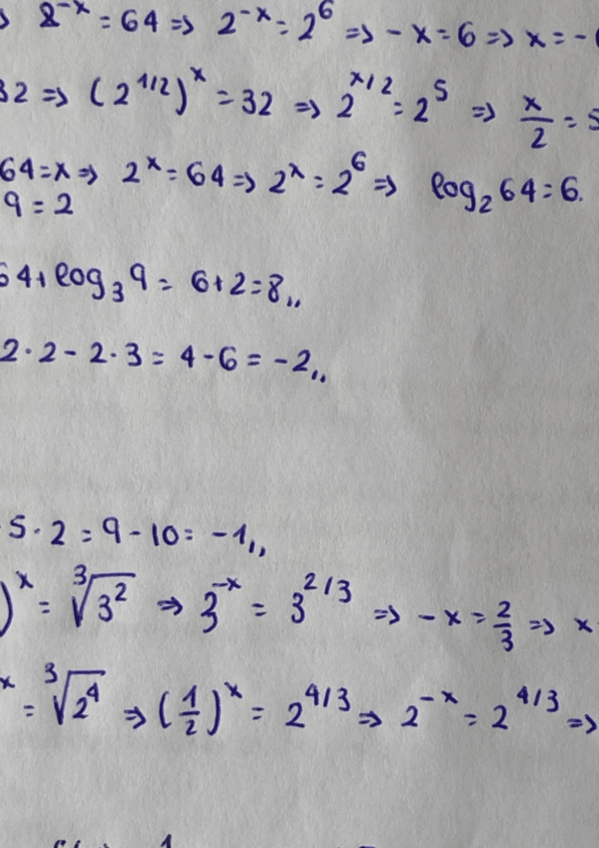 2^{-x} = 64 => 2^{-x} = 2^6 => -x = 6 => x = -
32 => (2^{1/2})^x = 32 => 2^{x/2} = 2^5 => x/2 = 5
64 = x => 2^x = 64 => 2^x = 2^6 => log_2 64 = 6.
9 = 2
64 + log_3 9 = 6 + 2 = 8,,
2 · 2 - 2 · 3 = 4 - 6 = -2,,
5 · 2 = 9 - 10 = -1,,
)^x = ∛(3^2) => 3^{-x} = 3^{2/3} => -x = 2/3 => x
x = ∛(2^4) => (1/2)^x = 2^{4/3} => 2^{-x} = 2^{4/3} =>